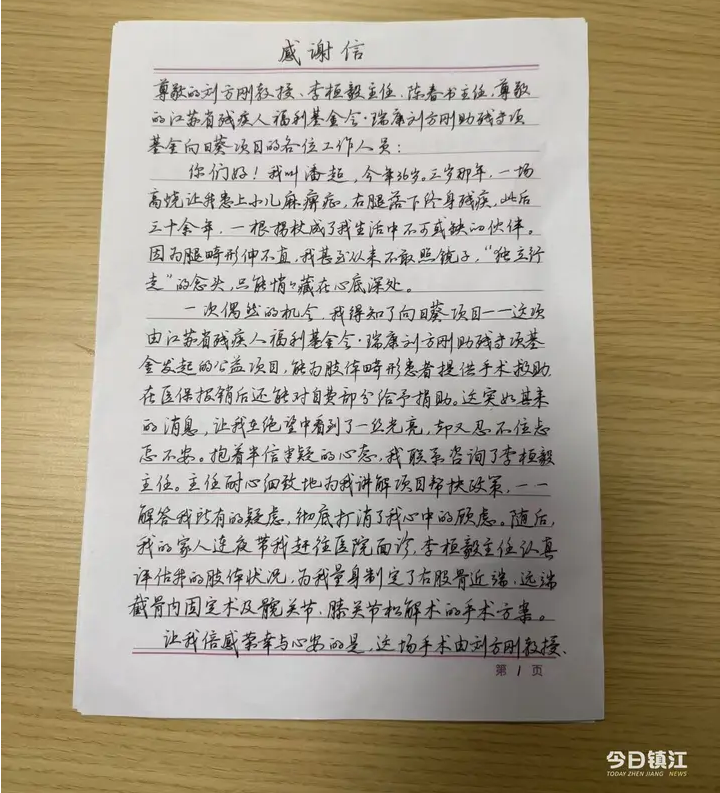 感谢信
尊敬的刘方刚教授、李桓毅主任、陈春书主任，尊敬
的江苏省残疾人福利基金会·瑞康刘方刚助残专项
基金向日葵项目的各位工作人员：
你们好！我叫潘超，今年36岁。三岁那年，一场
高烧让我患上小儿麻痹症，右腿落下终身残疾，此后
三十余年，一根拐杖成了我生活中不可或缺的伙伴。
因为腿畸形伸不直，我甚至以来不敢照镜子，“独立行
走”的念头，只能悄悄藏在心底深处。
一次偶然的机会，我得知了向日葵项目——这项
由江苏省残疾人福利基金会·瑞康刘方刚助残专项基
金发起的公益项目，能为肢体畸形患者提供手术救助，
在医保报销后还能对自费部分给予捐助。这突如其来
的消息，让我在绝望中看到了一丝光亮，却又忍不住忐
忑不安。抱着半信半疑的心态，我联系咨询了李桓毅
主任。主任耐心细致地为我讲解项目帮扶政策，一一
解答我所有的疑虑，彻底打消了我心中的顾虑。随后，
我的家人连夜带我赶往医院面诊，李桓毅主任认真
评估我的肢体状况，为我量身制定了右股骨近端、远端
截骨内固定术及髋关节、膝关节松解术的手术方案。
让我倍感荣幸与心安的是，这场手术由刘方刚教授、
第 1 页
今日镇江
TODAY ZHEN JIANG NEWS